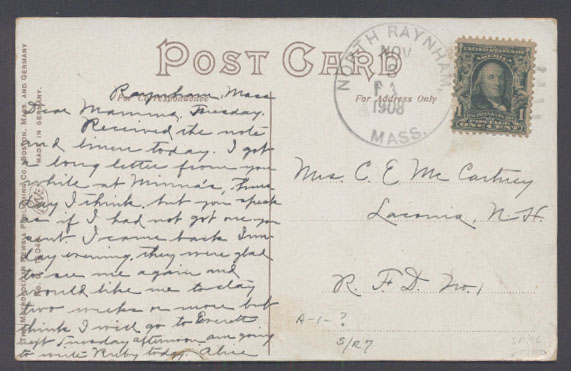 POST CARD
For Correspondence
For Address Only
NORTH RAYNHAM,
NOV
3
1908
MASS.
ONE CENT
1
Raynham, Mass
Dear Mamma, Tuesday.
Received the note
and today. I got
a long letter from you
while at Minna's, Thurs
day I think, but you speak
as if I had not got one you
sent. I came back Sun
day evening, they were glad
to see me again and
would like me to stay
two weeks or more but
think I will go to Everett
next Tuesday afternoon am going
to write Ruby today. Alice
Mrs. C. E. McCartney
Laconia, N-H.
R. F. D. No. 1
A-1-?
S/R7
THE METROPOLITAN NEWS PUBLISHING CO., BOSTON, MASS. AND GERMANY
MADE IN GERMANY.